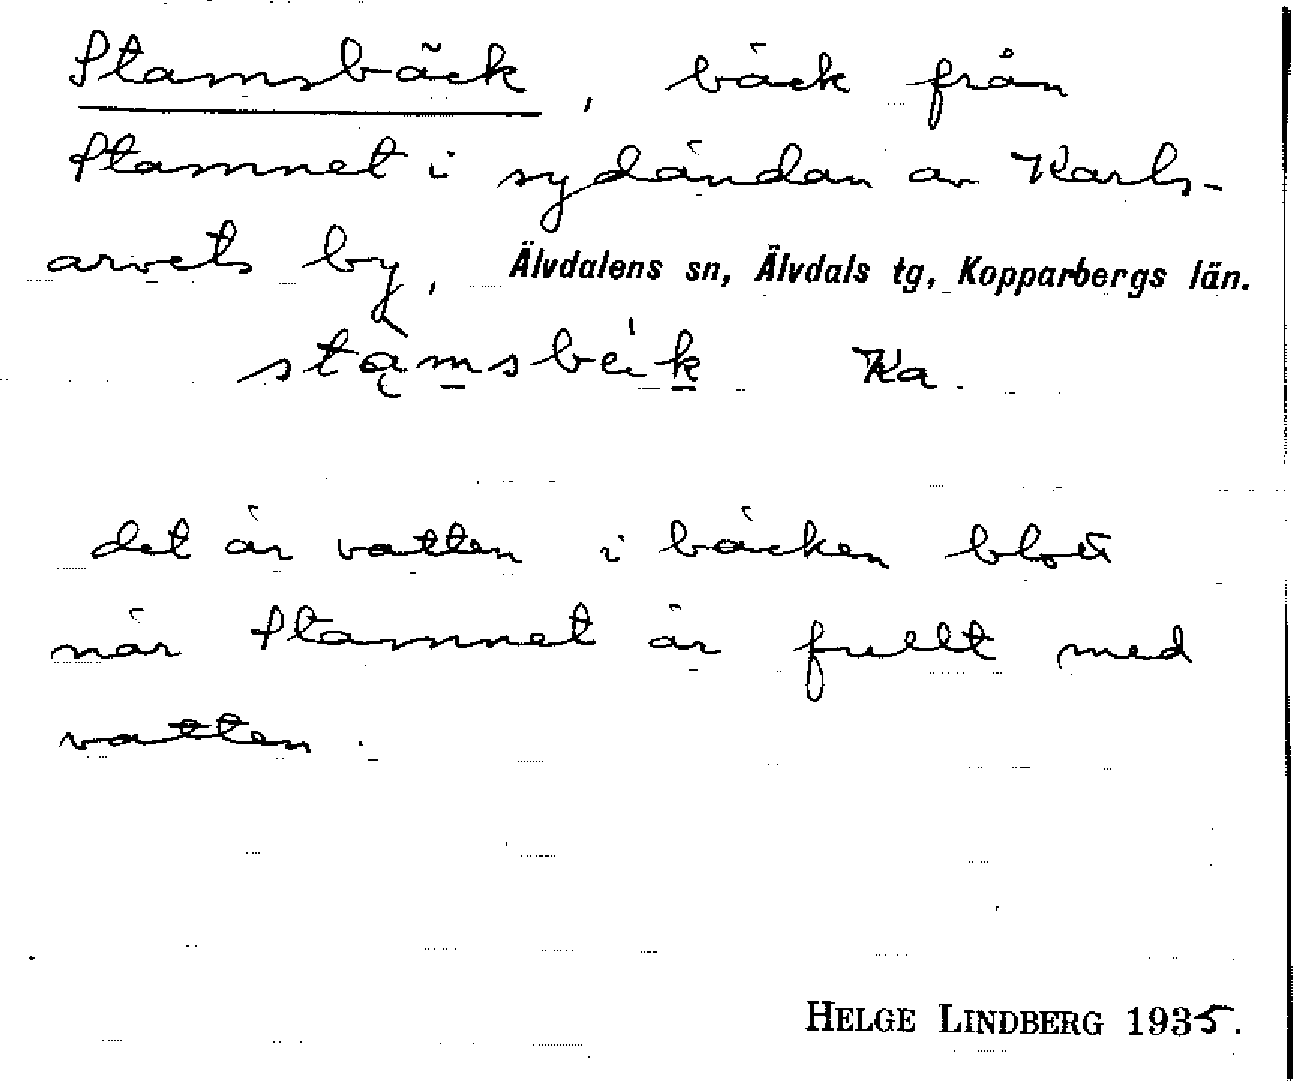 Stamsbäck, bäck från
Stamnet i sydändan av Karls-
arvets by, Älvdalens sn, Älvdals tg, Kopparbergs län.
stąmsbek Ka.
det är vatten i bäcken blott
när Stamnet är fullt med
vatten.
HELGE LINDBERG 1935.